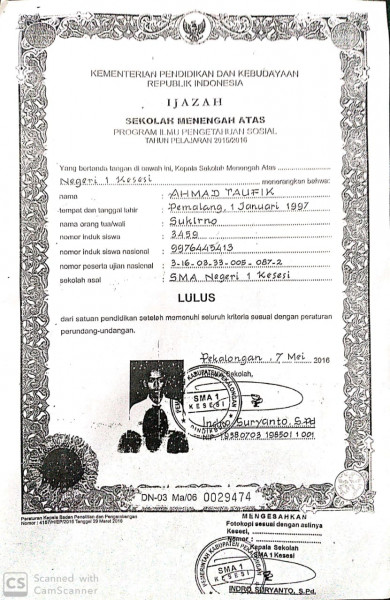 KEMENTERIAN PENDIDIKAN DAN KEBUDAYAAN
REPUBLIK INDONESIA
IJAZAH
SEKOLAH MENENGAH ATAS
PROGRAM ILMU PENGETAHUAN SOSIAL
TAHUN PELAJARAN 2015/2016
Yang bertanda tangan di bawah ini, Kepala Sekolah Menengah Atas
Negeri 1 Kesesi menerangkan bahwa:
nama : AHMAD TAUFIK
tempat dan tanggal lahir : Pemalang, 1 Januari 1997
nama orang tua/wali : Sukirno
nomor induk siswa : 3459
nomor induk siswa nasional : 9976445413
nomor peserta ujian nasional : 3-16-03-33-005-087-2
sekolah asal : SMA Negeri 1 Kesesi
LULUS
dari satuan pendidikan setelah memenuhi seluruh kriteria sesuai dengan peraturan
perundang-undangan.
Pekalongan, 7 Mei 2016
Sekolah,
SMA 1
KESESI
Indro Suryanto, S.Pd
DN-03 Ma/06 0029474
Peraturan Kepala Badan Penelitian dan Pengembangan
MENGESAHKAN
Fotokopi sesuai dengan aslinya
Kesesi,
Nomor :
Kepala Sekolah
SMA 1 Kesesi
SMA 1
KESESI
INDRO SURYANTO, S.Pd.
CS Scanned with
CamScanner